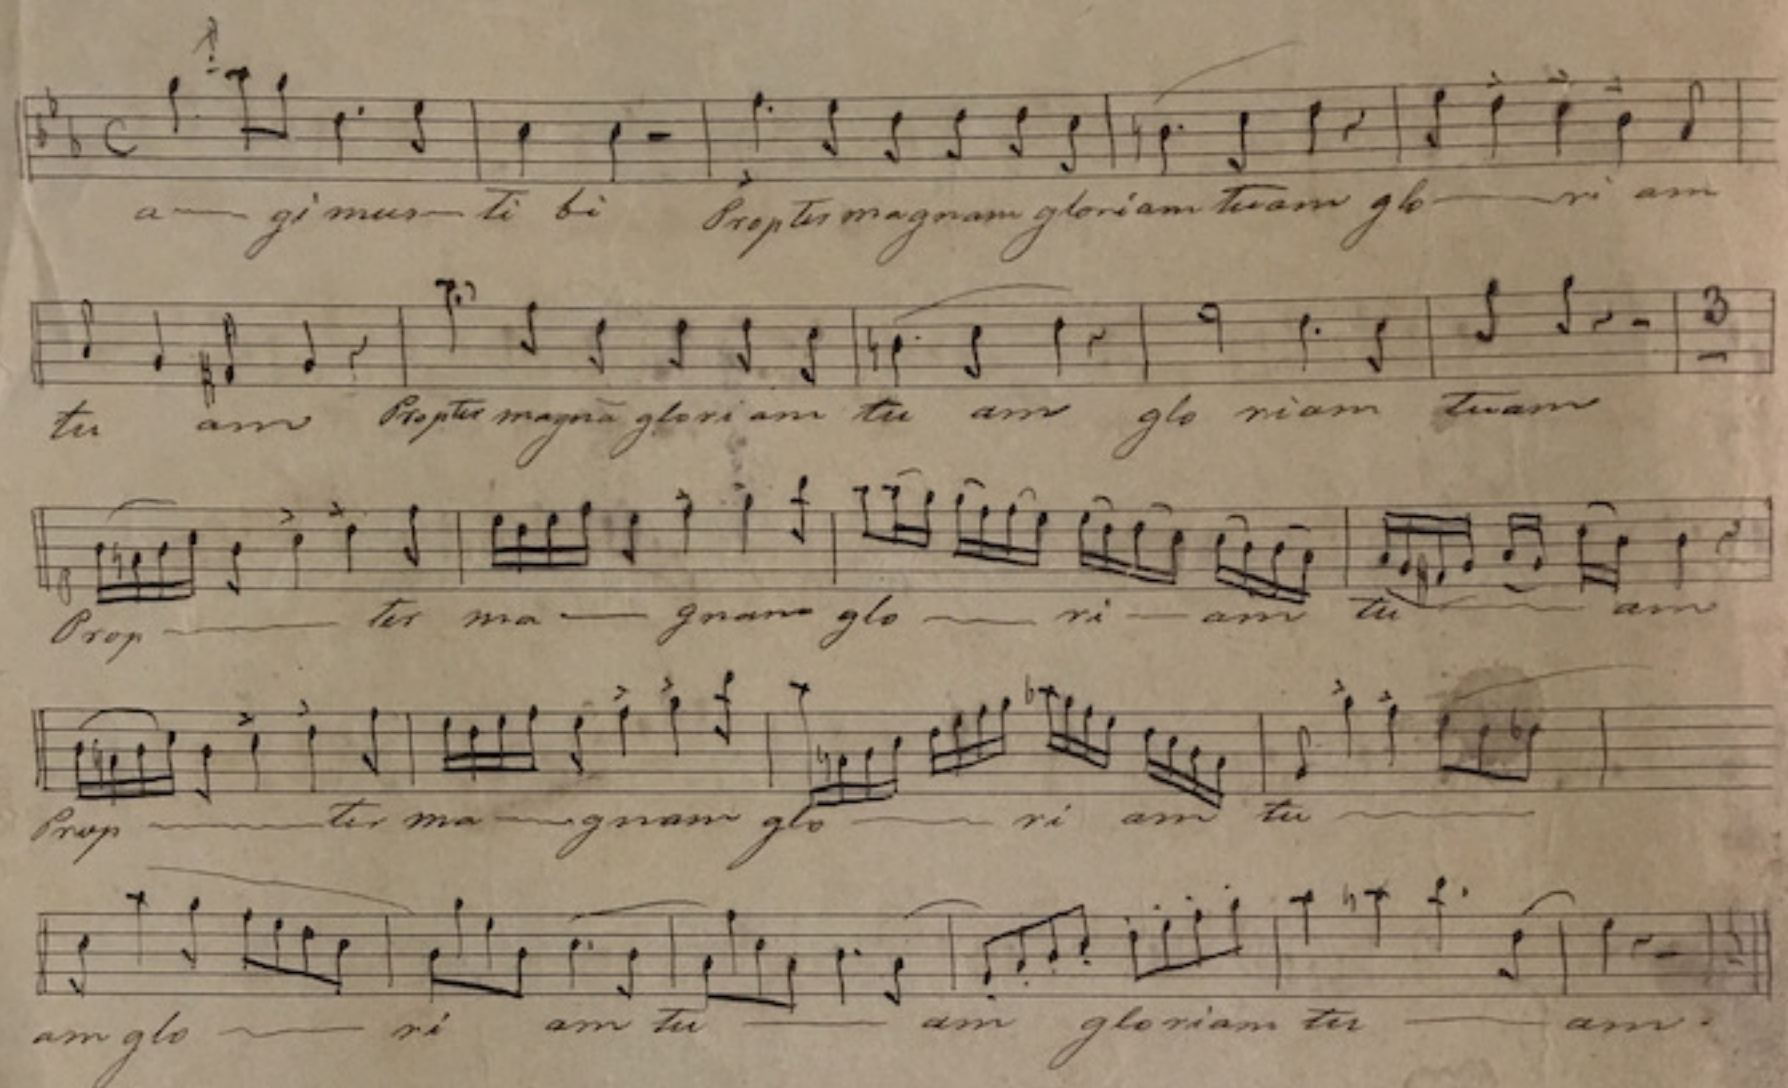 a gimus ti bi Propter magnam gloriam tuam glo ri am
tu am Propter magnā gloriam tu am glo riam tuam
3
Prop ter ma gnam glo ri am tu am
Prop ter ma gnam glo ri am tu
am glo ri am tu am gloriam tu am.